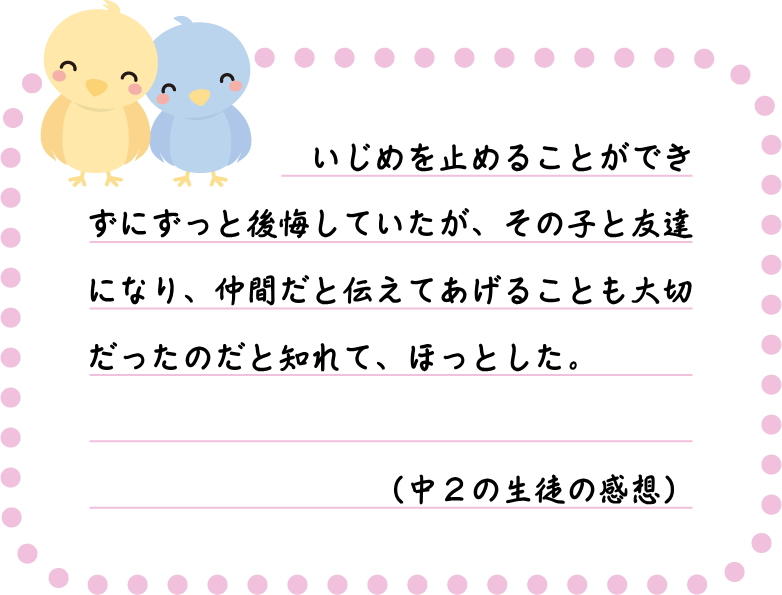 いじめを止めることができ
ずにずっと後悔していたが、その子と友達
になり、仲間だと伝えてあげることも大切
だったのだと知れて、ほっとした。
（中２の生徒の感想）